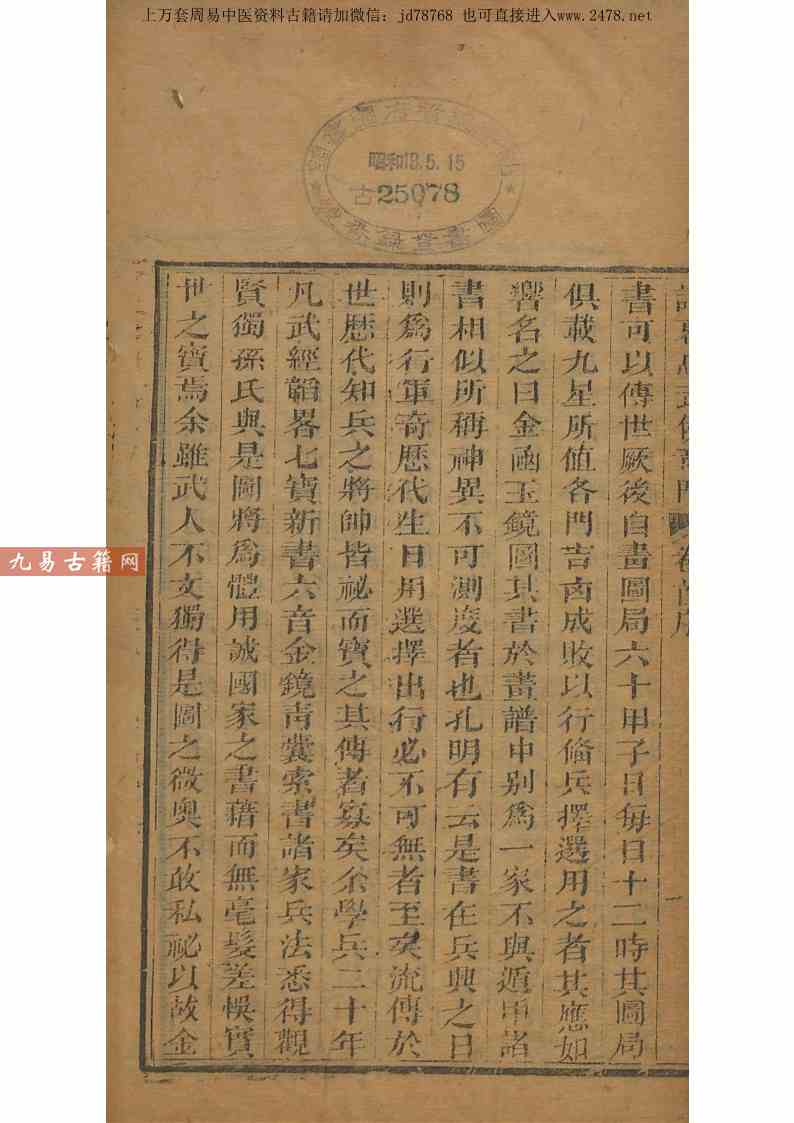 上万套周易中医资料古籍请加微信：jd78768 也可直接进入www.2478.net
昭和18.5.15
古25078
圖書登錄番
九易古籍网
卷首序
書可以傳世厥後自畫圖局六十甲子日每日十二時其圖局
俱載九星所值各門吉凶成敗以行偹兵擇選用之者其應如
響名之曰金函玉鏡圖其書於畫譜中别爲一家不與遁甲諸
書相似所稱神異不可測度者也孔明有云是書在兵興之日
則爲行軍竒歷代生日用選擇出行必不可無者至矣流傳於
世歷代知兵之將帥皆祕而寶之其傳者寡矣余學兵二十年
凡武經韜畧七寶新書六音金鏡靑囊索書諸家兵法悉得觀
賢獨孫氏與是圖將爲體用誠國家之書藉而無毫髮差悞實
世之寶焉余雖武人不文獨得是圖之微奥不敢私祕以故金